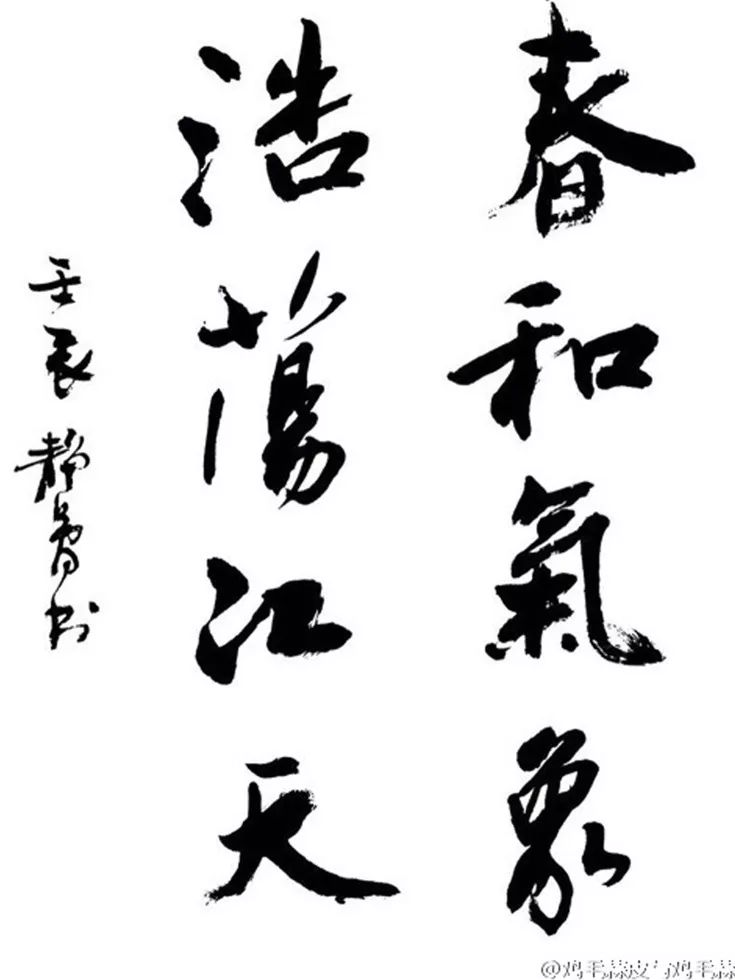 春和氣象
浩蕩江天
壬辰靜
书
@鸡毛蒜皮与鸡毛蒜